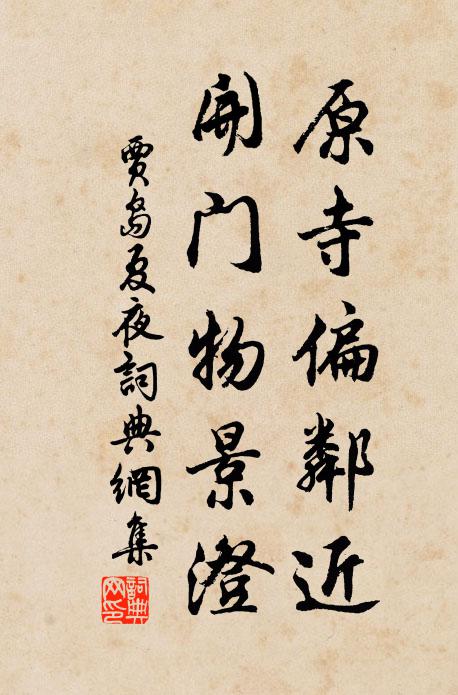 原寺偏鄰近
開門物景澄
賈島夏夜詞典網集
詞典網印